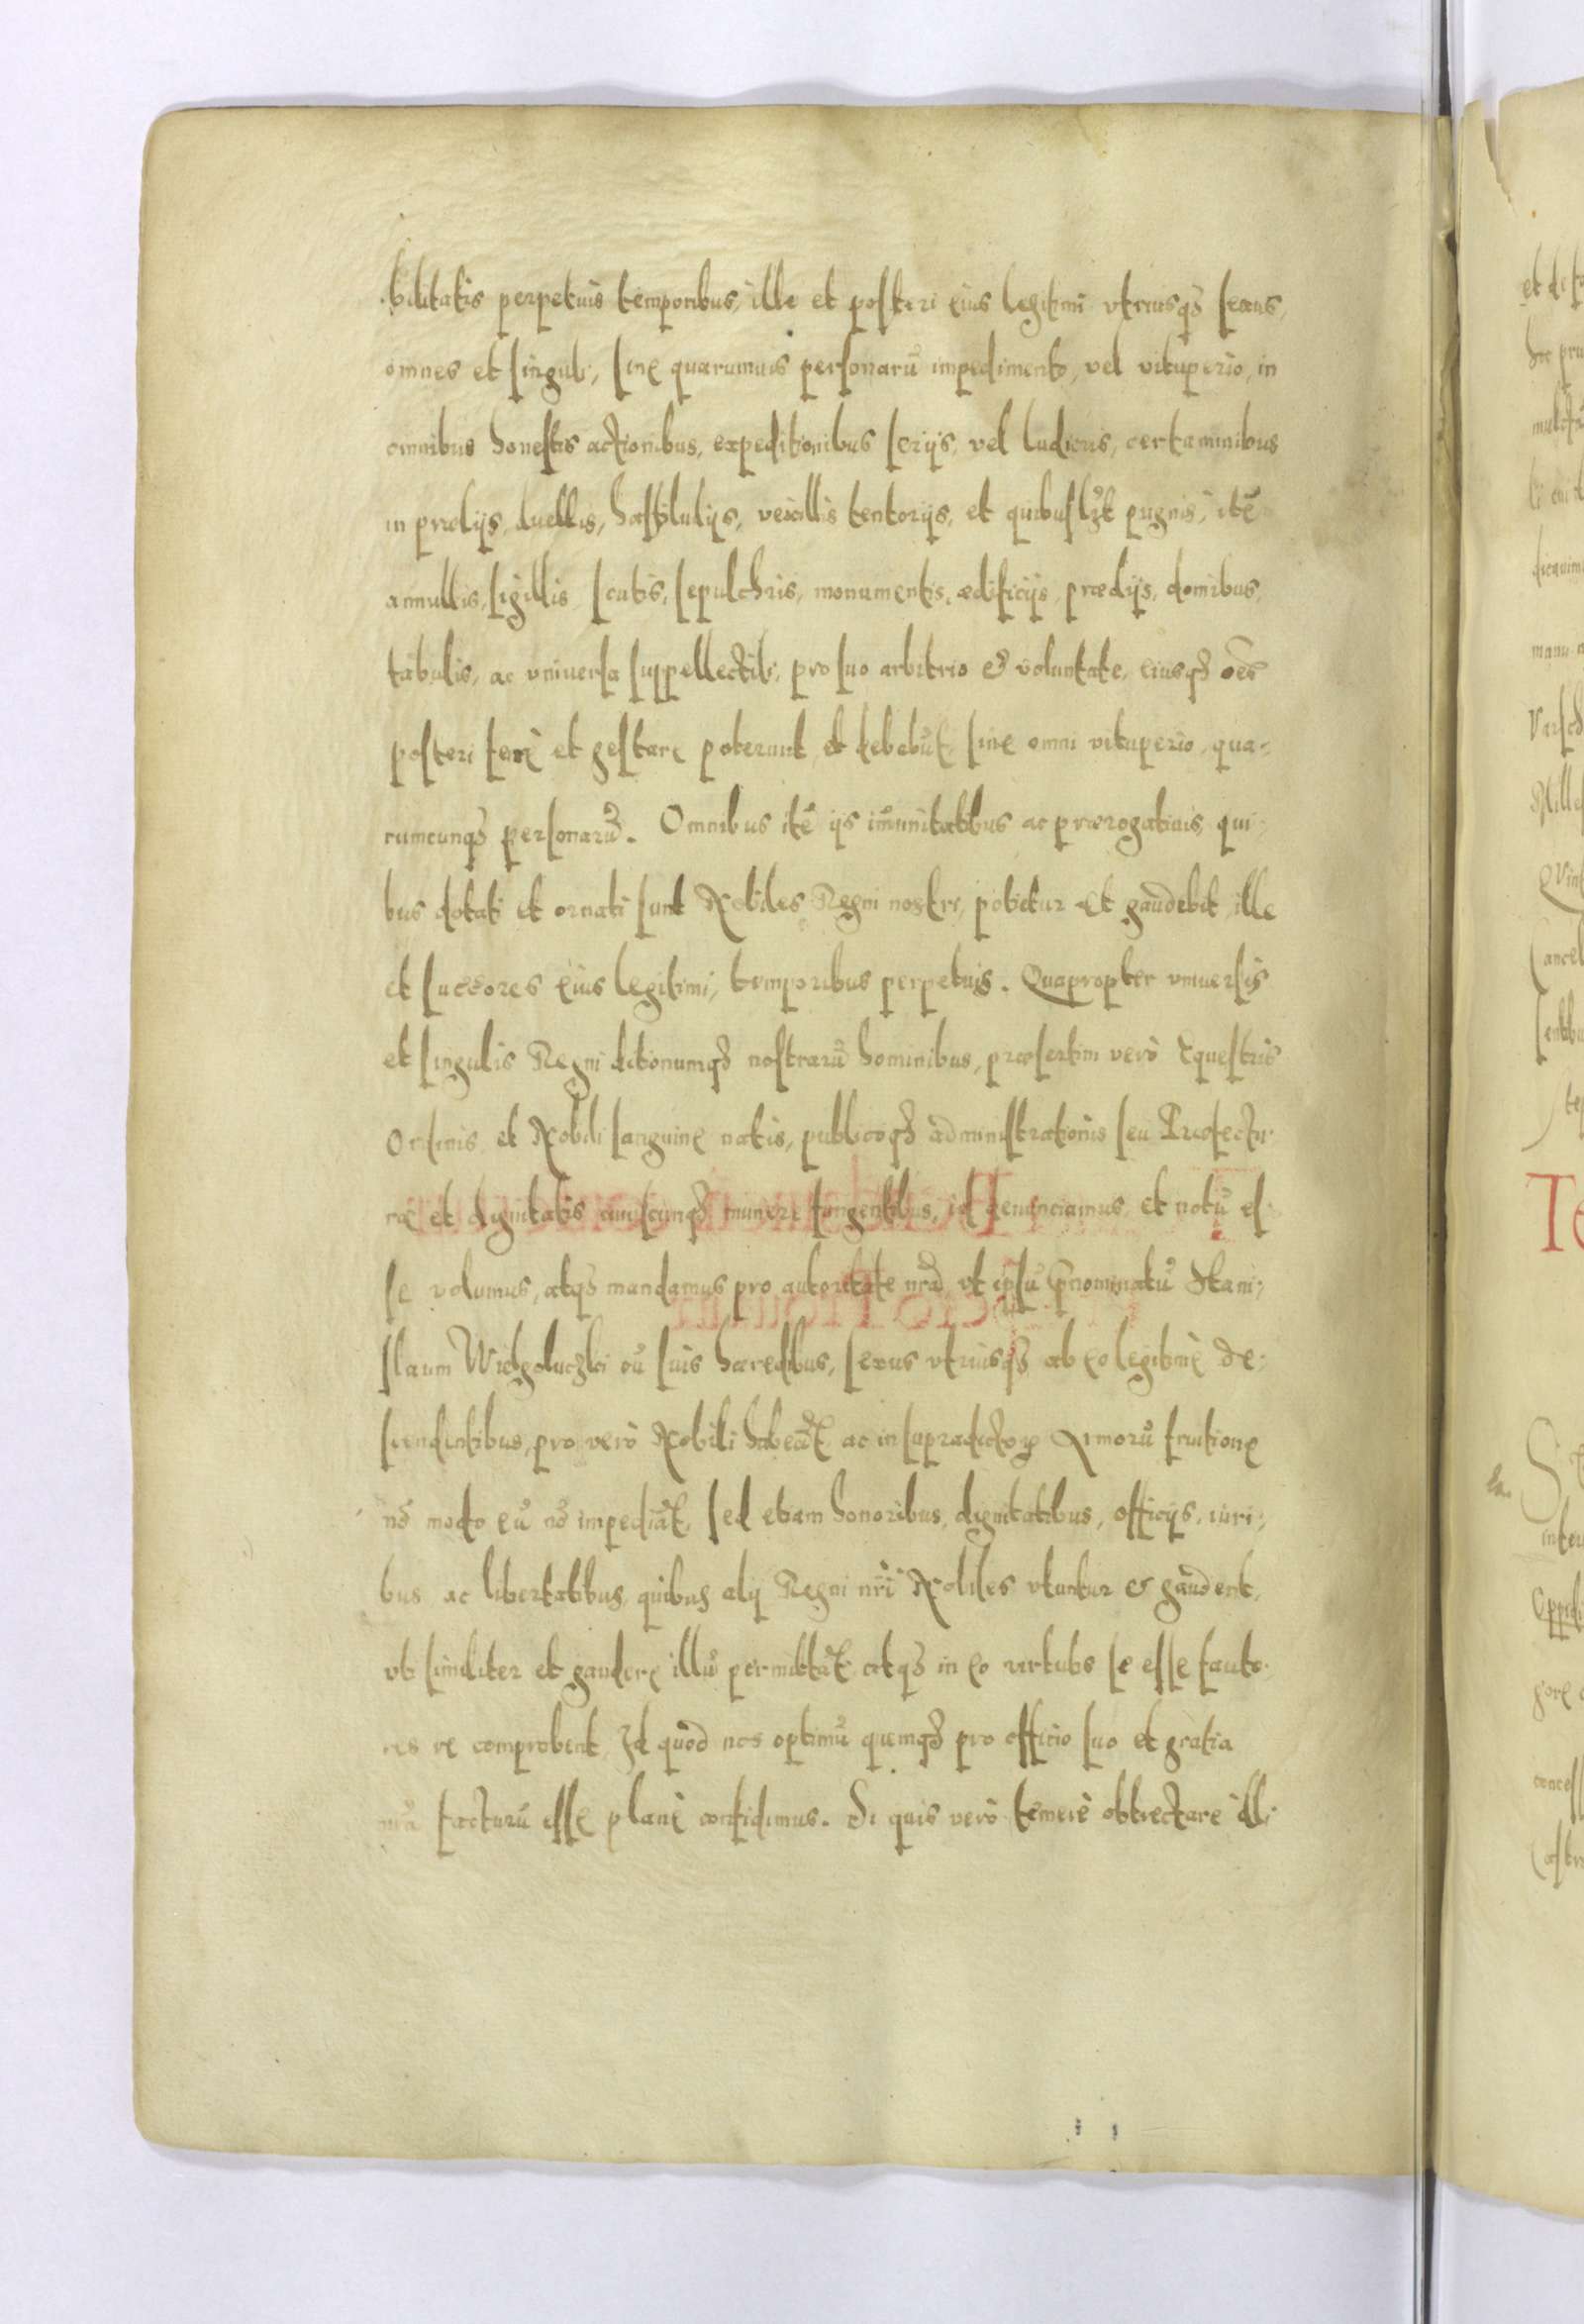 bilitatis perpetuis temporibus, ille et posteri eius legitimi vtriusqȝ sexus,
omnes et singuli, sine quarumuis personarũ impedimento, vel vituperio, in
omnibus honestis actionibus, expeditionibus serijs, vel ludicris, certaminibus
in prælijs, duellis, hastiludijs, vexillis tentorijs, et quibuslȝt pugnis, itẽ
annullis, sigillis scutis, sepulchris, monumentis, ædificijs, prædijs, domibus,
tabulis, ac vniuersa suppellectili, pro suo arbitrio & voluntate, eiusqȝ oẽs
posteri ferè et gestare poterunt, et debebũt, sine omni vituperio, qua-
rumcunqȝ personarũ. Omnibus itẽ ijs im̃unitatibus ac prærogatiuis, qui-
bus dotati et ornati sunt Nobiles Regni nostri, potietur et gaudebit, ille
et succores eius legitimi, temporibus perpetuis. Quapropter vniuersis
et singulis Regni ditionumqȝ nostrarũ hominibus, præsertim verò Equestris
Ordinis, et Nobili sanguine natis, publicoqȝ administrationis seu Præfectu-
ræ et dignitatis cuiuscunqȝ munere fungentibus, id denunciamus, et notũ es-
se volumus, atqȝ mandamus pro autoritate nrã, vt ipsũ p̃nominatũ Stani-
slaum cũ suis hæredibus, sexus vtriusqȝ ab eo legitimè de-
scendentibus, pro verò Nobili habeãt, ac in supradictoꝝ Armorũ fruitione
nõ modo eũ nõ impediãt, sed etiam honoribus, dignitatibus, officijs, iuri-
bus ac libertatibus, quibus alij Regni nri Nobiles vtuntur & gaudent,
vti similiter et gaudere illũ permittãt, atqȝ in eo virtutis se esse fauto-
res re comprobent, Id quòd nos optimũ quemqȝ pro officio suo et gratia
nrã facturũ esse planè confidimus. Si quis verò temerè obtrectare illi